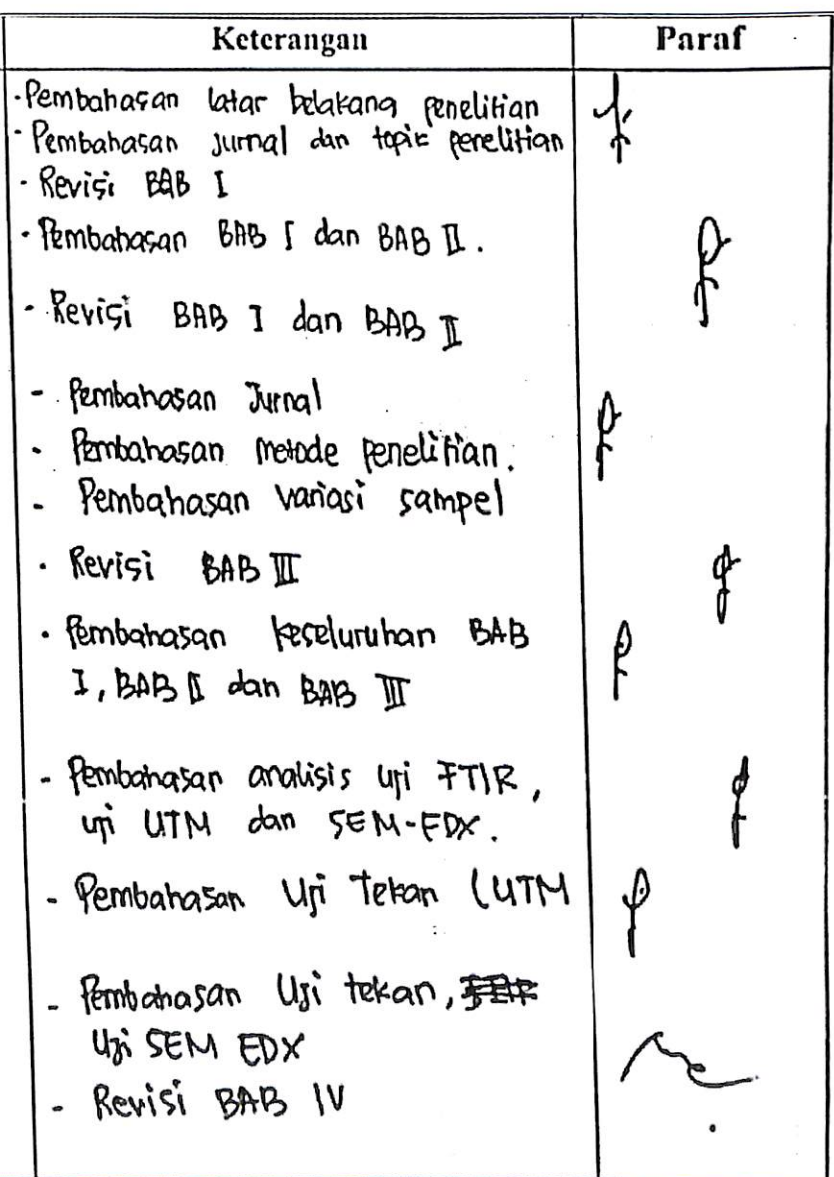 Keterangan Paraf
- Pembahasan latar belakang penelitian
- Pembahasan jurnal dan topik penelitian
- Revisi BAB I
- Pembahasan BAB I dan BAB II.
- Revisi BAB I dan BAB II
- Pembahasan Jurnal
- Pembahasan metode penelitian.
- Pembahasan variasi sampel
- Revisi BAB III
- Pembahasan keseluruhan BAB
I, BAB II dan BAB III
- Pembahasan analisis uji FTIR,
uji UTM dan SEM-EDX.
- Pembahasan Uji Tekan (UTM
- Pembahasan Uji tekan,
Uji SEM EDX
- Revisi BAB IV